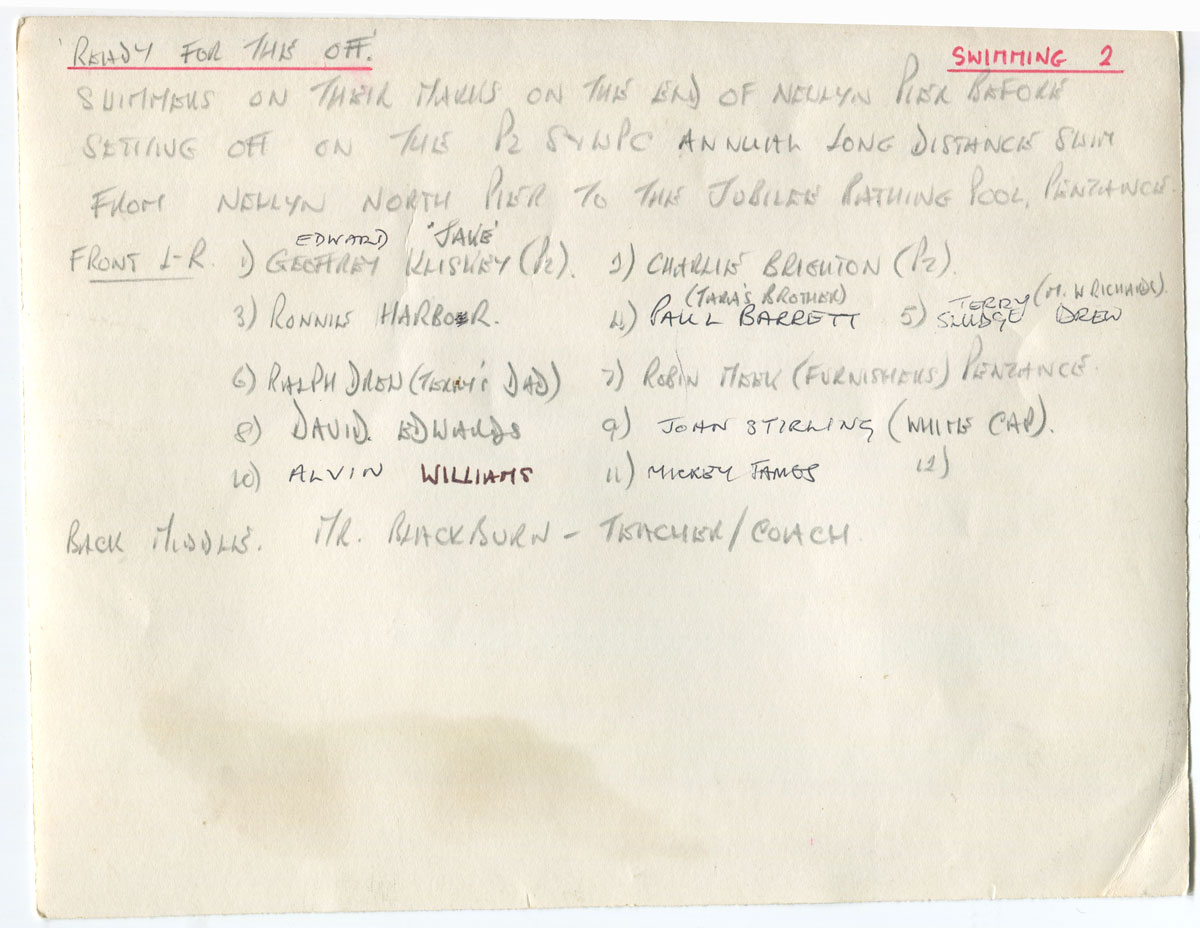 'READY FOR THE OFF.' SWIMMING 2
SWIMMERS ON THEIR MARKS ON THE END OF NEWLYN PIER BEFORE
SETTING OFF ON THE PZ S & WPC ANNUAL LONG DISTANCE SWIM
FROM NEWLYN NORTH PIER TO THE JUBILEE BATHING POOL, PENZANCE.
EDWARD 'JAKE'
FRONT L-R. 1) GEOFFREY KLISKEY (PZ). 2) CHARLIE BRIGHTON (PZ).
(TARA'S BROTHER) TERRY (M. W RICHARDS).
3) RONNIE HARBOUR. 4) PAUL BARRETT 5) SLUDGE DREW
6) RALPH DREW (TERRY'S DAD) 7) ROBIN MEEK (FURNISHERS) PENZANCE.
8) DAVID. EDWARDS 9) JOHN STIRLING (WHITE CAP).
10) ALVIN WILLIAMS 11) MICKEY JAMES 12)
BACK MIDDLE. MR. BLACKBURN - TEACHER/COACH.